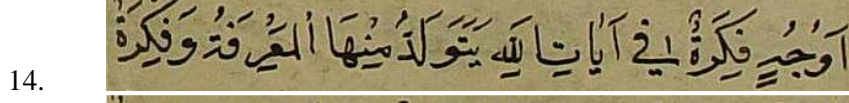 اَوْجُهٍ فِكَرَةٌ فِي آيَاتِ اللهِ يَتَوَلَّدُ مِنْهَا الْمَعْرِفَةُ وَفِكَرَةٌ
14.